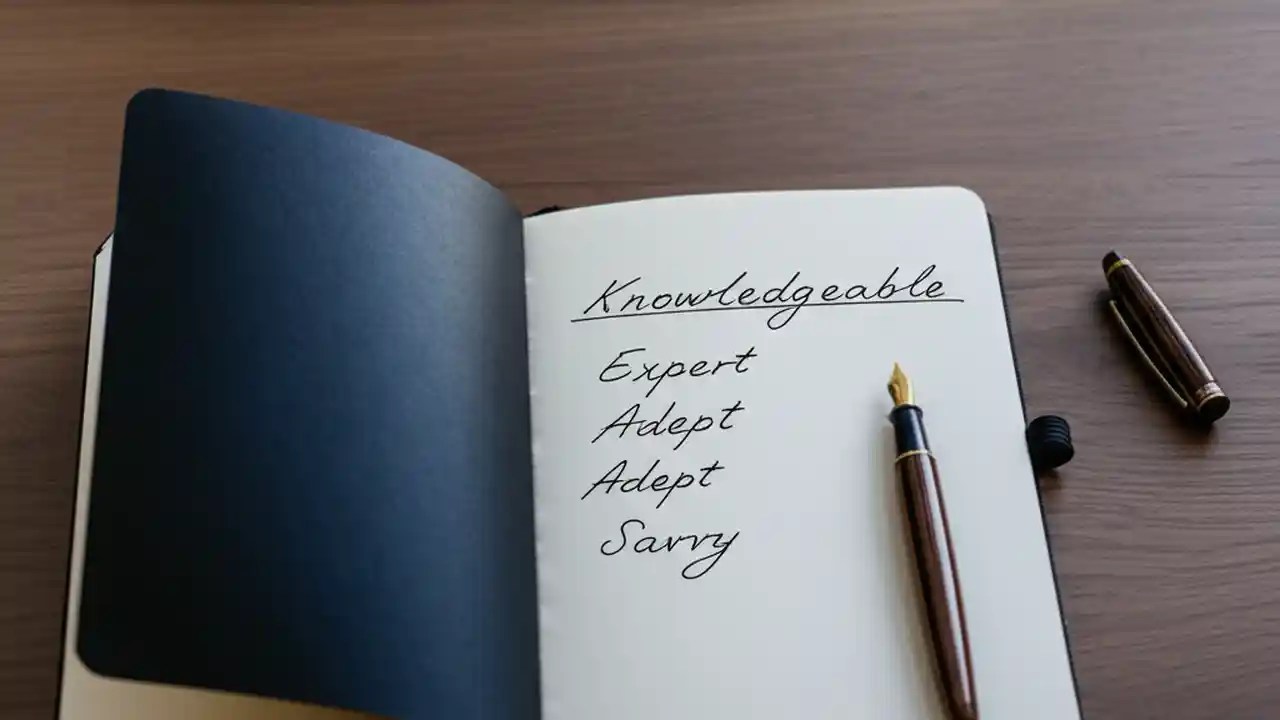 Knowledgeable
Expert
Adept
Adept
Savvy